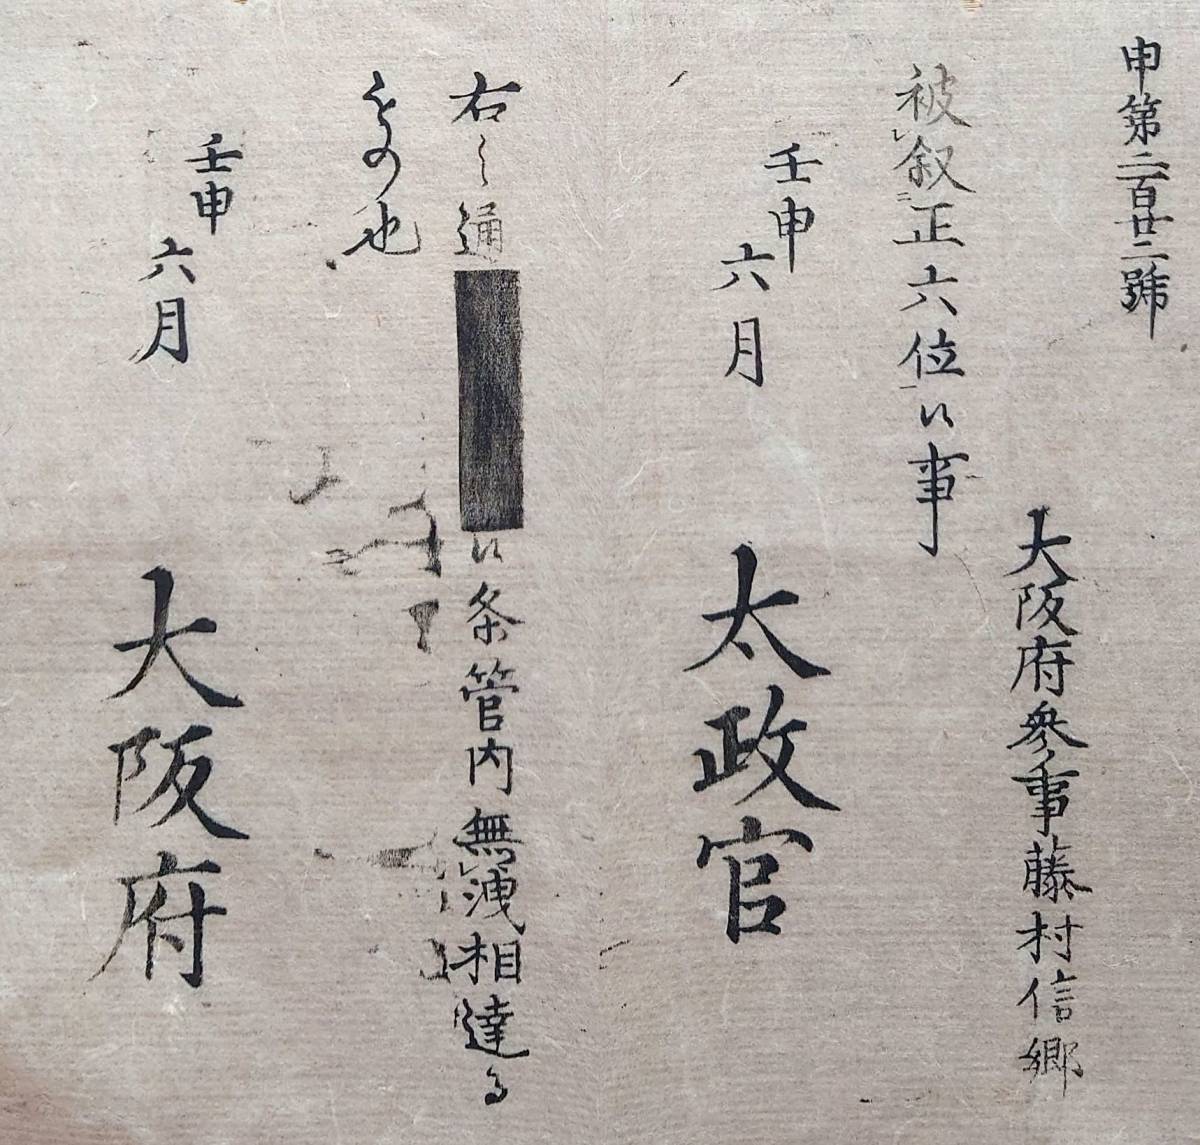 申第二百廿二號
大阪府參事藤村信郷
被叙正六位候事
壬申
六月
太政官
右之通
候条管内無洩相達る
もの也
壬申
六月
大阪府